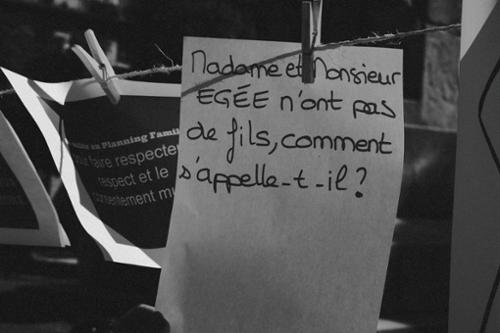 Madame et Monsieur
EGÉE n'ont pas
de fils, comment
s'appelle-t-il?
en Planning Famil
faire respecter
respect et le